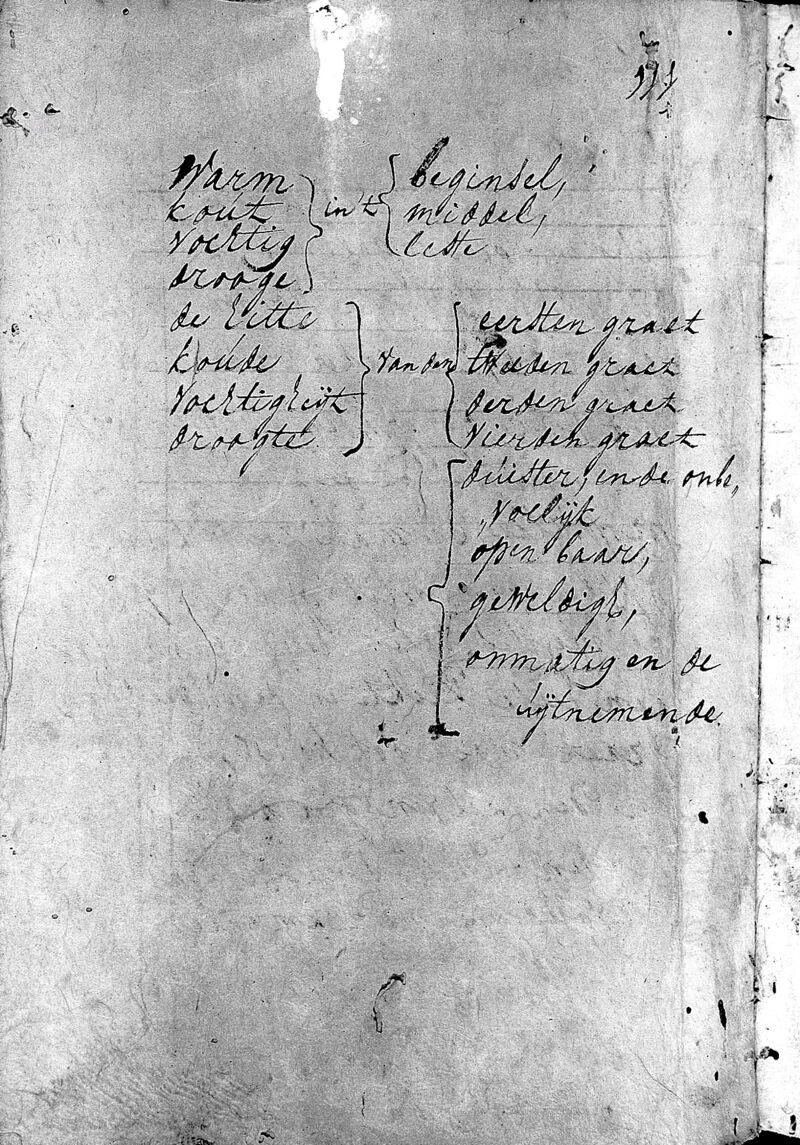 Warm
kout
vochtig
drooge.
in't
beginsel,
middel,
leste
de hitte
koude
vochtigheijt
droogte.
van den
eersten graet
tweeden graet
derden graet
vierden graet
duister, ende onbe,,
,,voelijk
open baar,
geweldigh,
onmatig en de
uijtnemende.